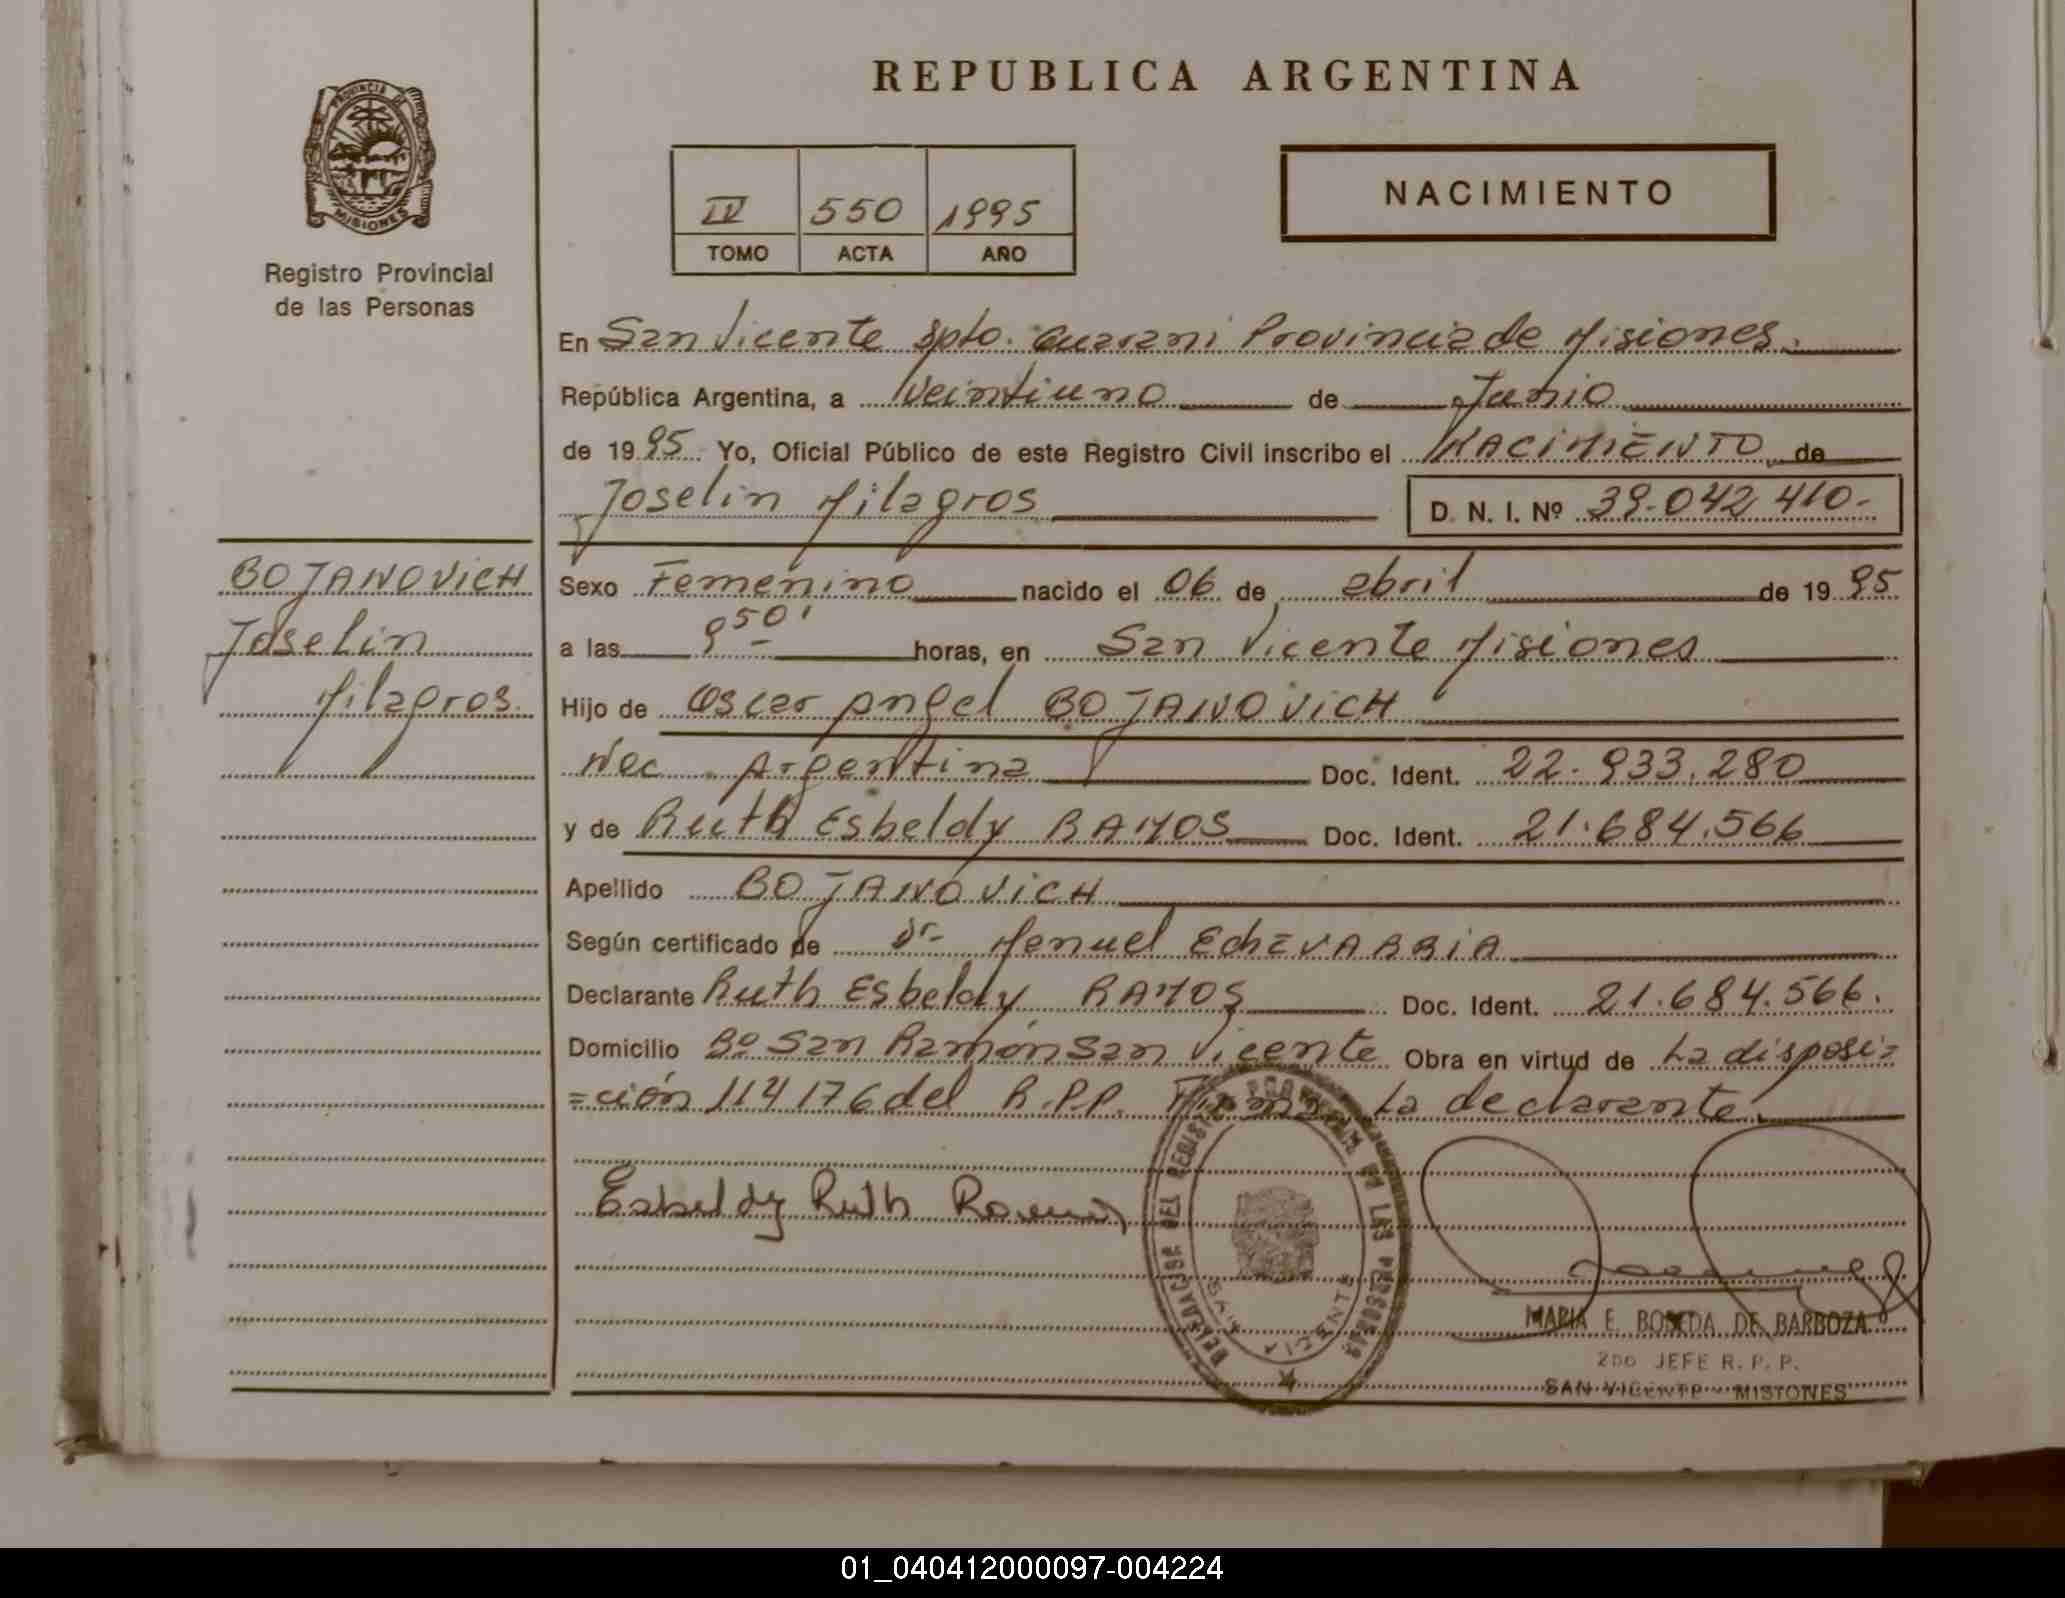 REPUBLICA ARGENTINA
PROVINCIA DE
MISIONES
Registro Provincial
de las Personas
IV 550 1995
TOMO ACTA AÑO
NACIMIENTO
En San Vicente Dpto. Guarani Provincia de Misiones.
República Argentina, a Veintiuno de Junio
de 1995 Yo, Oficial Público de este Registro Civil inscribo el NACIMIENTO de
Joselin Milagros D. N. I. Nº 39.042.410.-
BOJANOVICH
Joselin
Milagros.
Sexo Femenino nacido el 06 de abril de 1995
a las 9 50' horas, en San Vicente Misiones
Hijo de Oscar Angel BOJANOVICH
Nac. Argentina Doc. Ident. 22.933.280
y de Ruth Esbeldy RAMOS Doc. Ident. 21.684.566
Apellido BOJANOVICH
Según certificado de Dr. Manuel ECHEVARRIA
Declarante Ruth Esbeldy RAMOS Doc. Ident. 21.684.566.
Domicilio Bº San Ramón San Vicente Obra en virtud de La disposi=
=ción 114176 del R.P.P. Firma La declarante.
Esbeldy Ruth Ramos
DEL REGISTRO PROVINCIAL DE LAS PERSONAS
SAN VICENTE
MARIA E. BOVEDA DE BARBOZA
2DO JEFE R. P. P.
SAN VICENTE - MISIONES
01_040412000097-004224